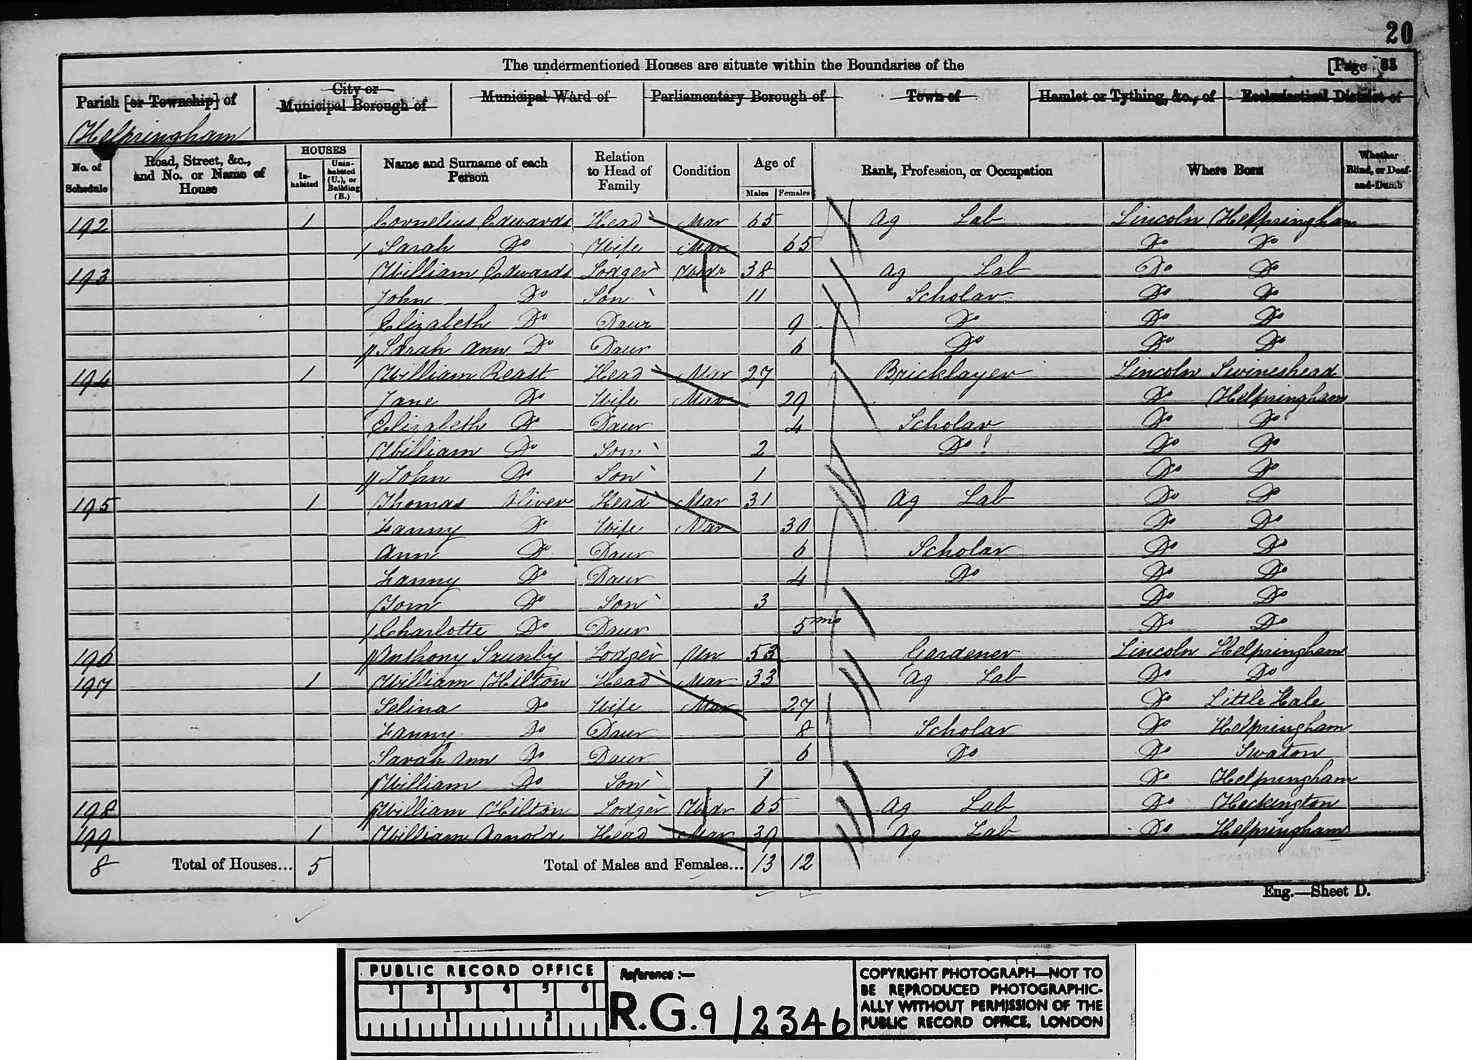 20
The undermentioned Houses are situate within the Boundaries of the [Page
Parish [or Township] of City or Municipal Borough of Municipal Ward of Parliamentary Borough of Town of Hamlet or Tything, &c., of Ecclesiastical District of
Helpringham
No. of Schedule Road, Street, &c., and No. or Name of House HOUSES In-habited Unin-habited (U.), or Building (B.) Name and Surname of each Person Relation to Head of Family Condition Age of Males Females Rank, Profession, or Occupation Where Born Whether Blind, or Deaf-and-Dumb
192 1 Cornelius Edwards Head Mar 65 Ag Lab Lincoln Helpringham
Sarah Do Wife Mar 65 Do Do
193 William Edwards Lodger Widr 38 Ag Lab Do Do
John Do Son 11 Scholar Do Do
Elizabeth Do Daur 9 Do Do Do
Sarah Ann Do Daur 6 Do Do Do
194 1 William Reast Head Mar 27 Bricklayer Lincoln Swineshead
Jane Do Wife Mar 29 Do Helpringham
Elizabeth Do Daur 4 Scholar Do Do
William Do Son 2 Do Do Do
John Do Son 1 Do Do
195 1 Thomas Oliver Head Mar 31 Ag Lab Do Do
Fanny Do Wife Mar 30 Do Do
Ann Do Daur 6 Scholar Do Do
Fanny Do Daur 4 Do Do Do
Tom Do Son 3 Do Do
Charlotte Do Daur 5mo Do Do
196 Anthony Lodger Un 53 Gardener Lincoln Helpringham
197 1 William Hilton Head Mar 33 Ag Lab Do Do
Selina Do Wife Mar 27 Do Little Hale
Fanny Do Daur 8 Scholar Do Helpringham
Sarah Ann Do Daur 6 Do Do Swaton
William Do Son 1 Do Helpringham
198 William Hilton Lodger Widr 65 Ag Lab Do Heckington
199 1 William Arnold Head Mar 39 Ag Lab Do Helpringham
8 Total of Houses... 5 Total of Males and Females... 13 12
Eng.—Sheet D.
PUBLIC RECORD OFFICE
1 2 3 4 5 6
1 2
Reference :—
R.G. 9/2346
COPYRIGHT PHOTOGRAPH—NOT TO
BE REPRODUCED PHOTOGRAPHIC-
ALLY WITHOUT PERMISSION OF THE
PUBLIC RECORD OFFICE, LONDON